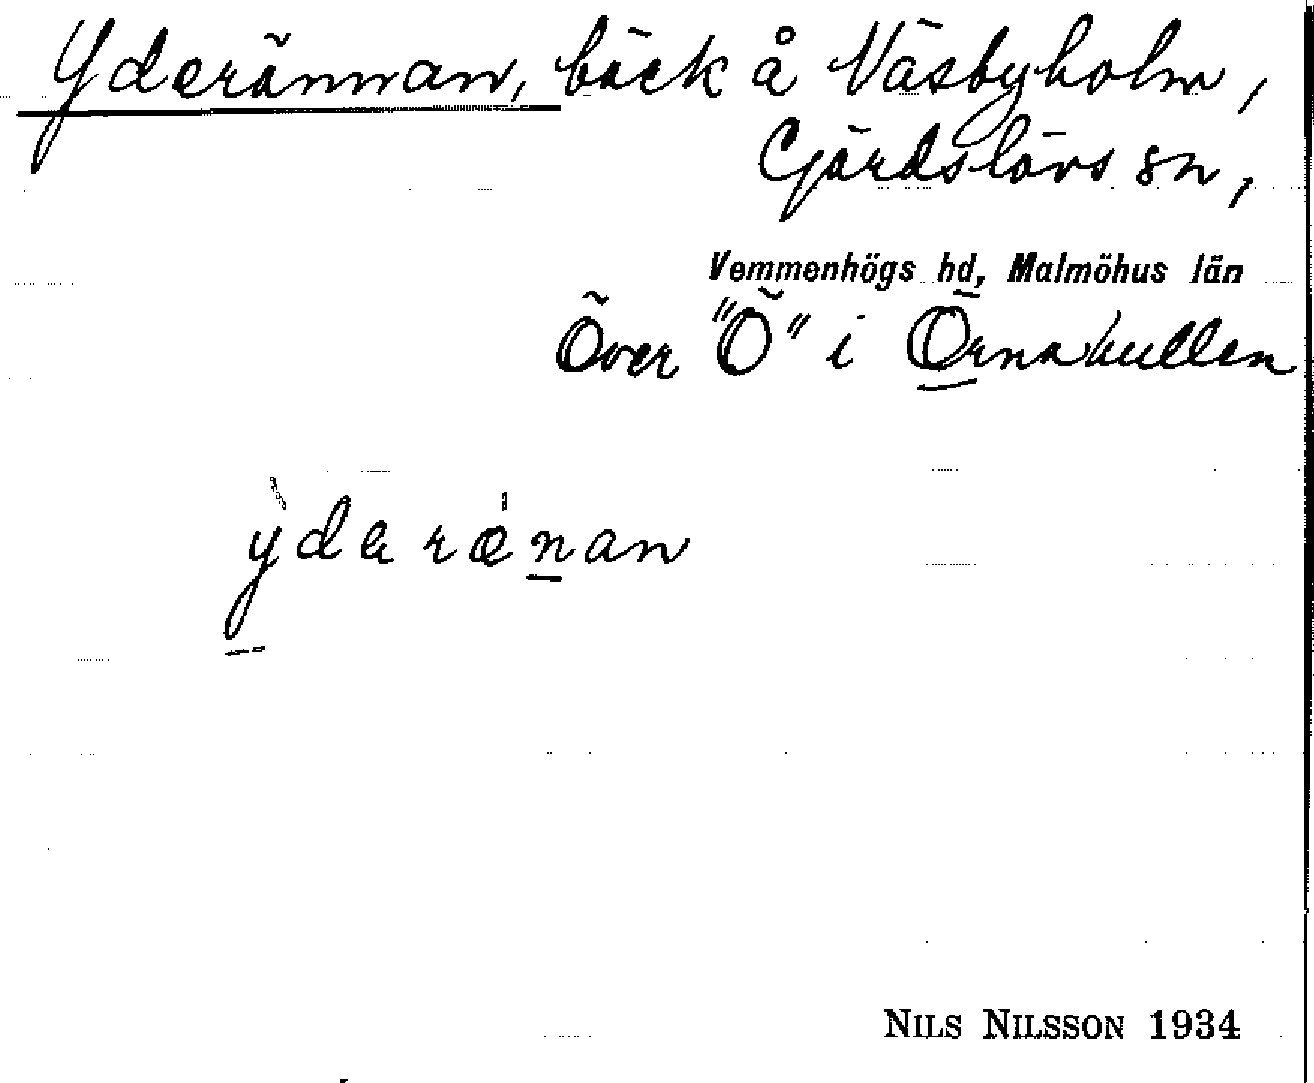 Yderännan, bäck å Väsbyholm,
Gärdslövs sn,
Vemmenhögs hd, Malmöhus län
Över "Ö" i Örnakullen
ỳdarǽnan
NILS NILSSON 1934